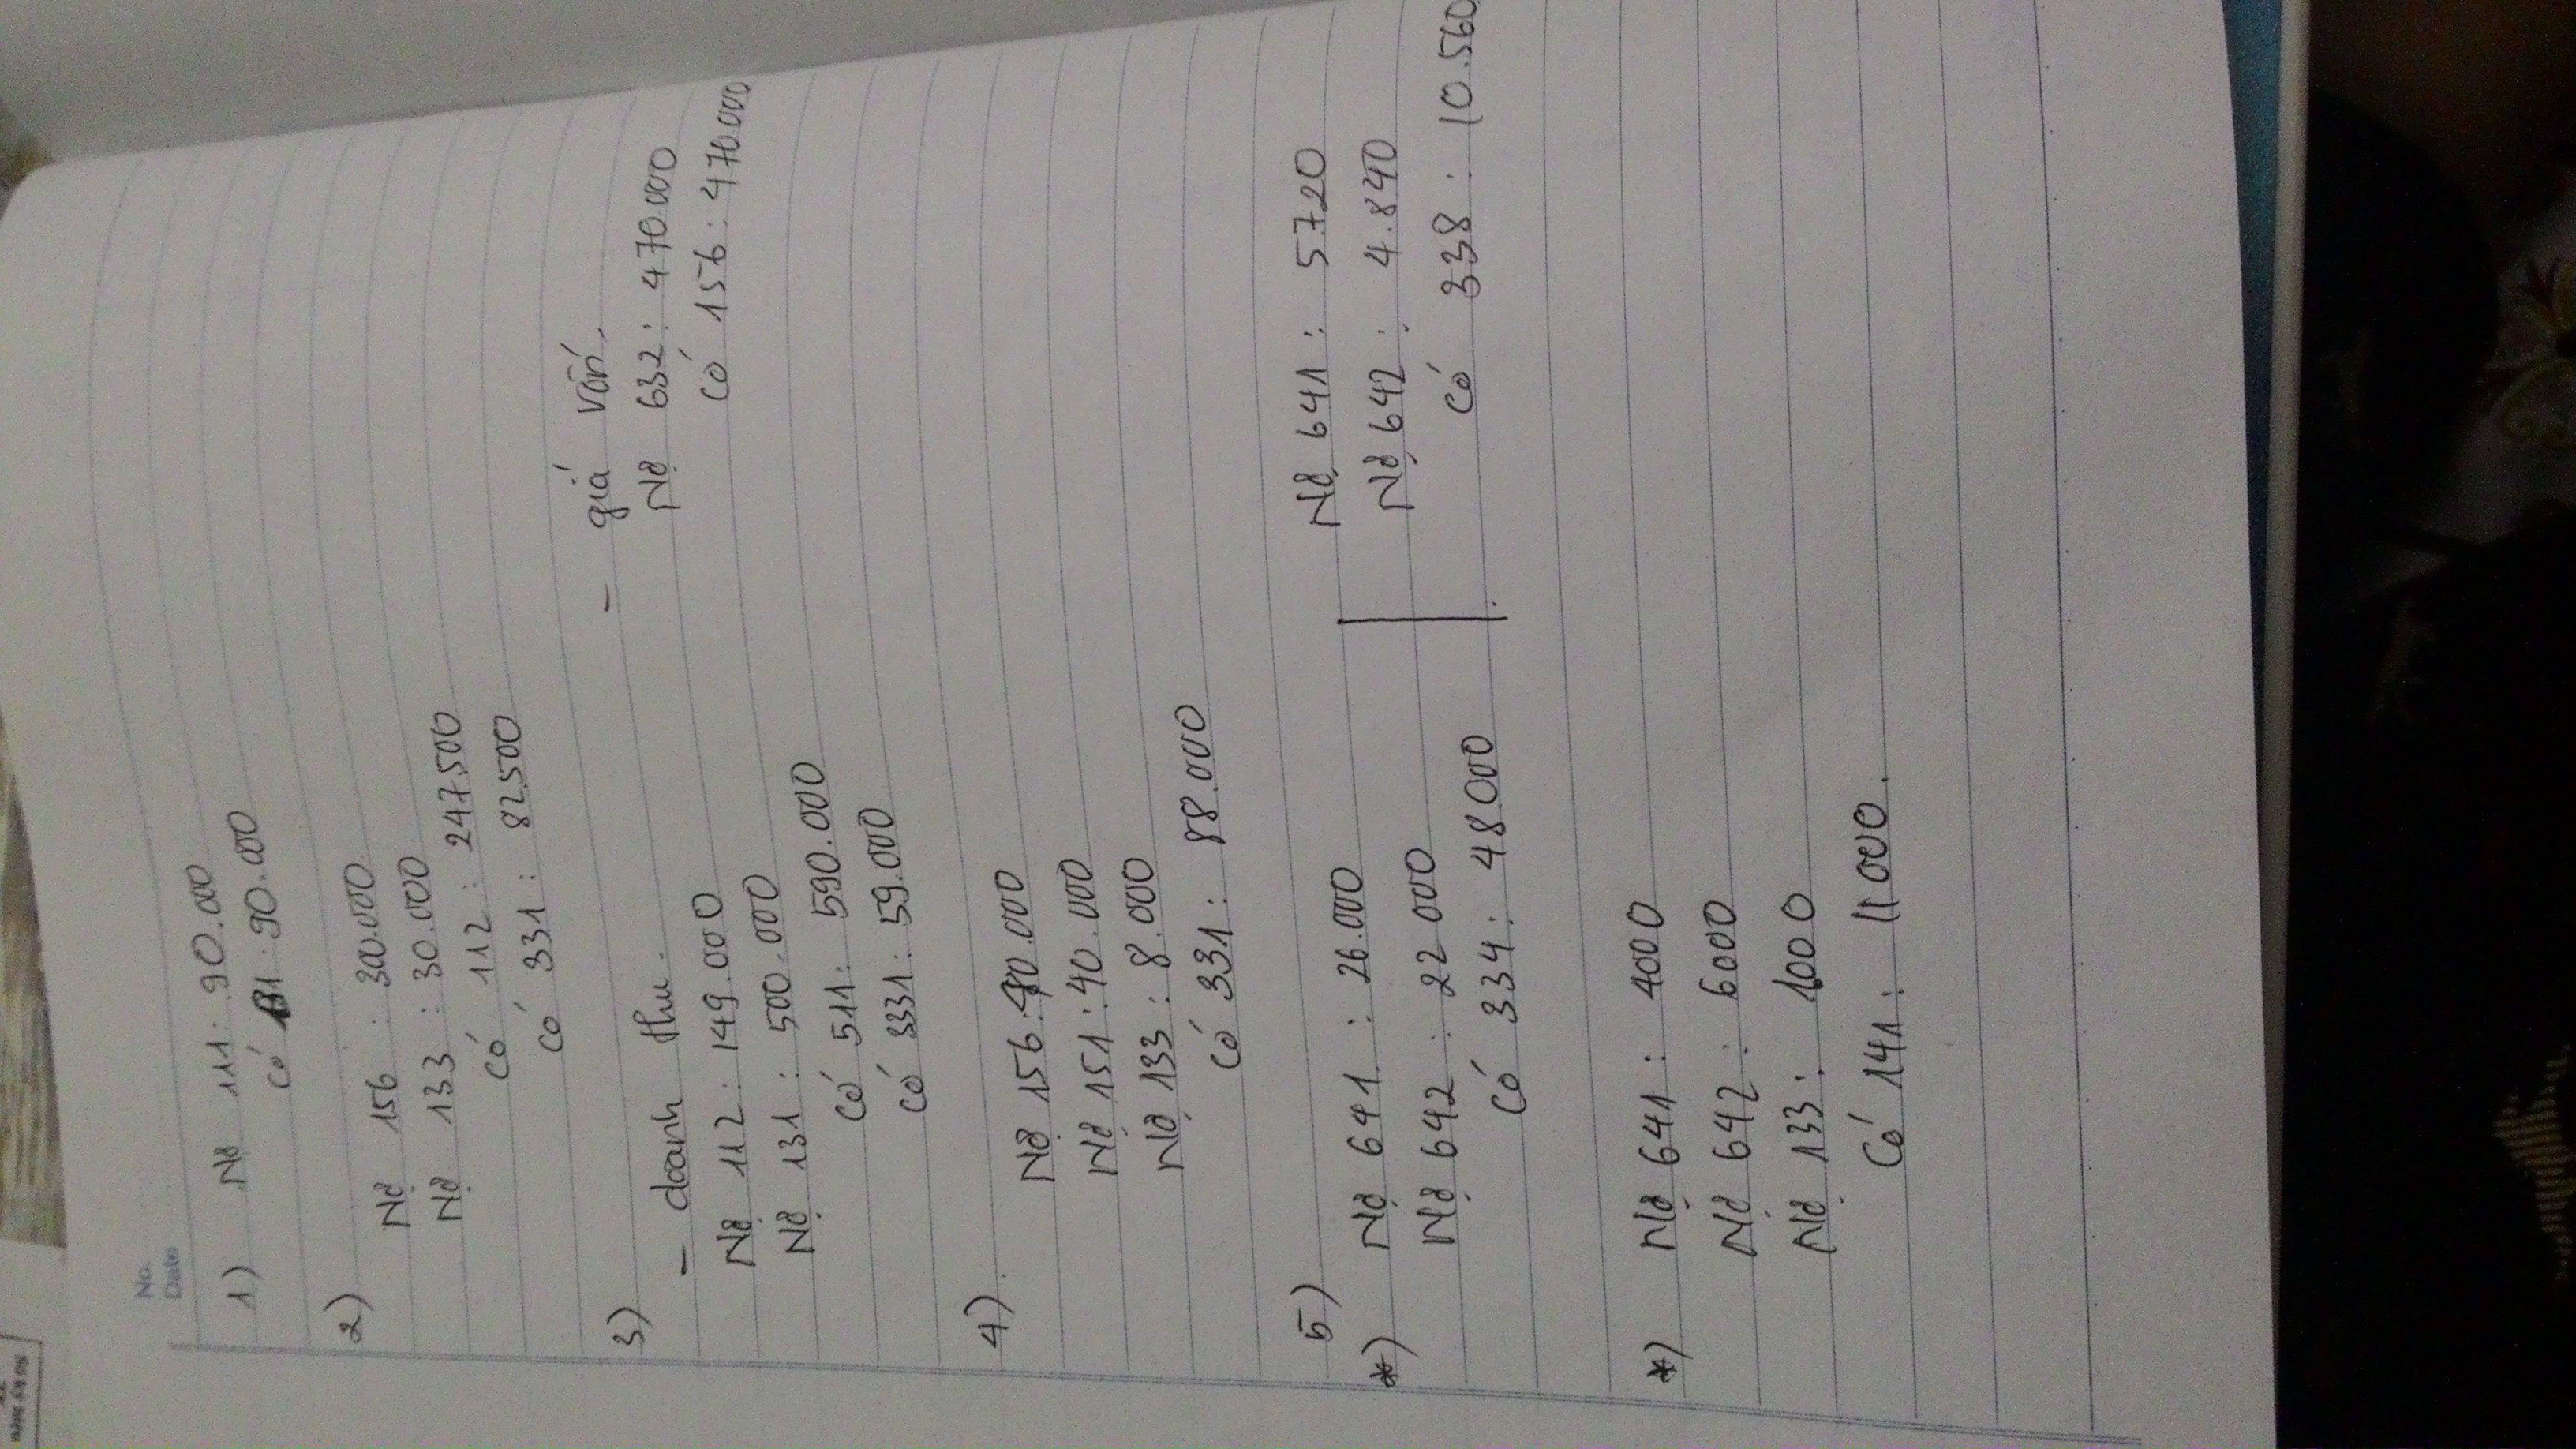 No.
Date
1) Nợ 111 : 90.000
Có 131 : 90.000
2)
Nợ 156 : 300.000
Nợ 133 : 30.000
Có 112 : 247.500
Có 331 : 82.500
3)
- doanh thu.
Nợ 112 : 149.000
Nợ 131 : 500.000
Có 511 : 590.000
Có 3331 : 59.000
- giá vốn.
Nợ 632 : 470.000
Có 156 : 470.000
4).
Nợ 156 : 40.000
Nợ 151 : 40.000
Nợ 133 : 8.000
Có 331 : 88.000
5)
*) Nợ 641 : 26.000
Nợ 642 : 22 000
Có 334 : 48 000
Nợ 641 : 5720
Nợ 642 : 4.840
Có 338 : 10.560
*) Nợ 641 : 4000
Nợ 642 : 6000
Nợ 133 : 1000
Có 141 : 11 000.